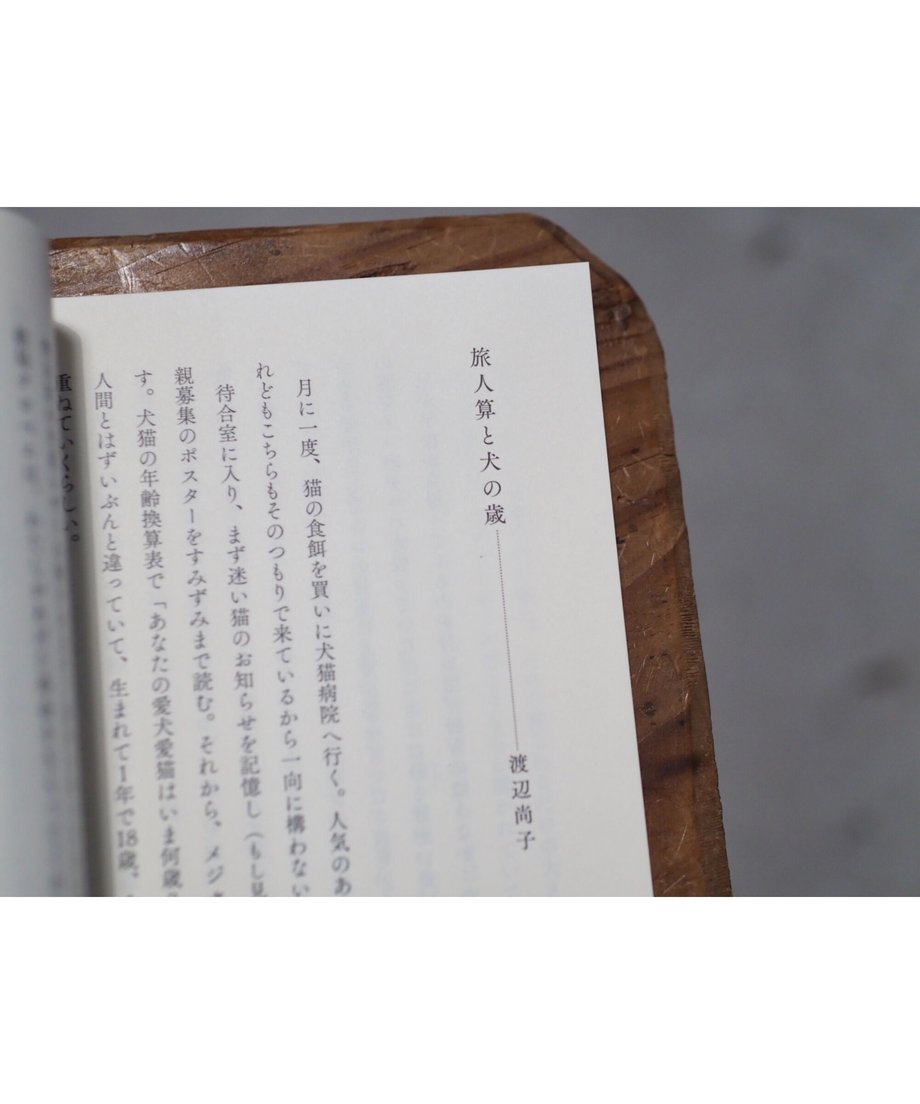 旅人算と犬の歳
渡辺尚子
月に一度、猫の食餌を買いに犬猫病院へ行く。人気のあ
れどもこちらもそのつもりで来ているから一向に構わない
待合室に入り、まず迷い猫のお知らせを記憶し（もし見
親募集のポスターをすみずみまで読む。それから、メジ
す。犬猫の年齢換算表で「あなたの愛犬愛猫はいま何歳
人間とはずいぶんと違っていて、生まれて1年で18歳、
重ねていくらしい。